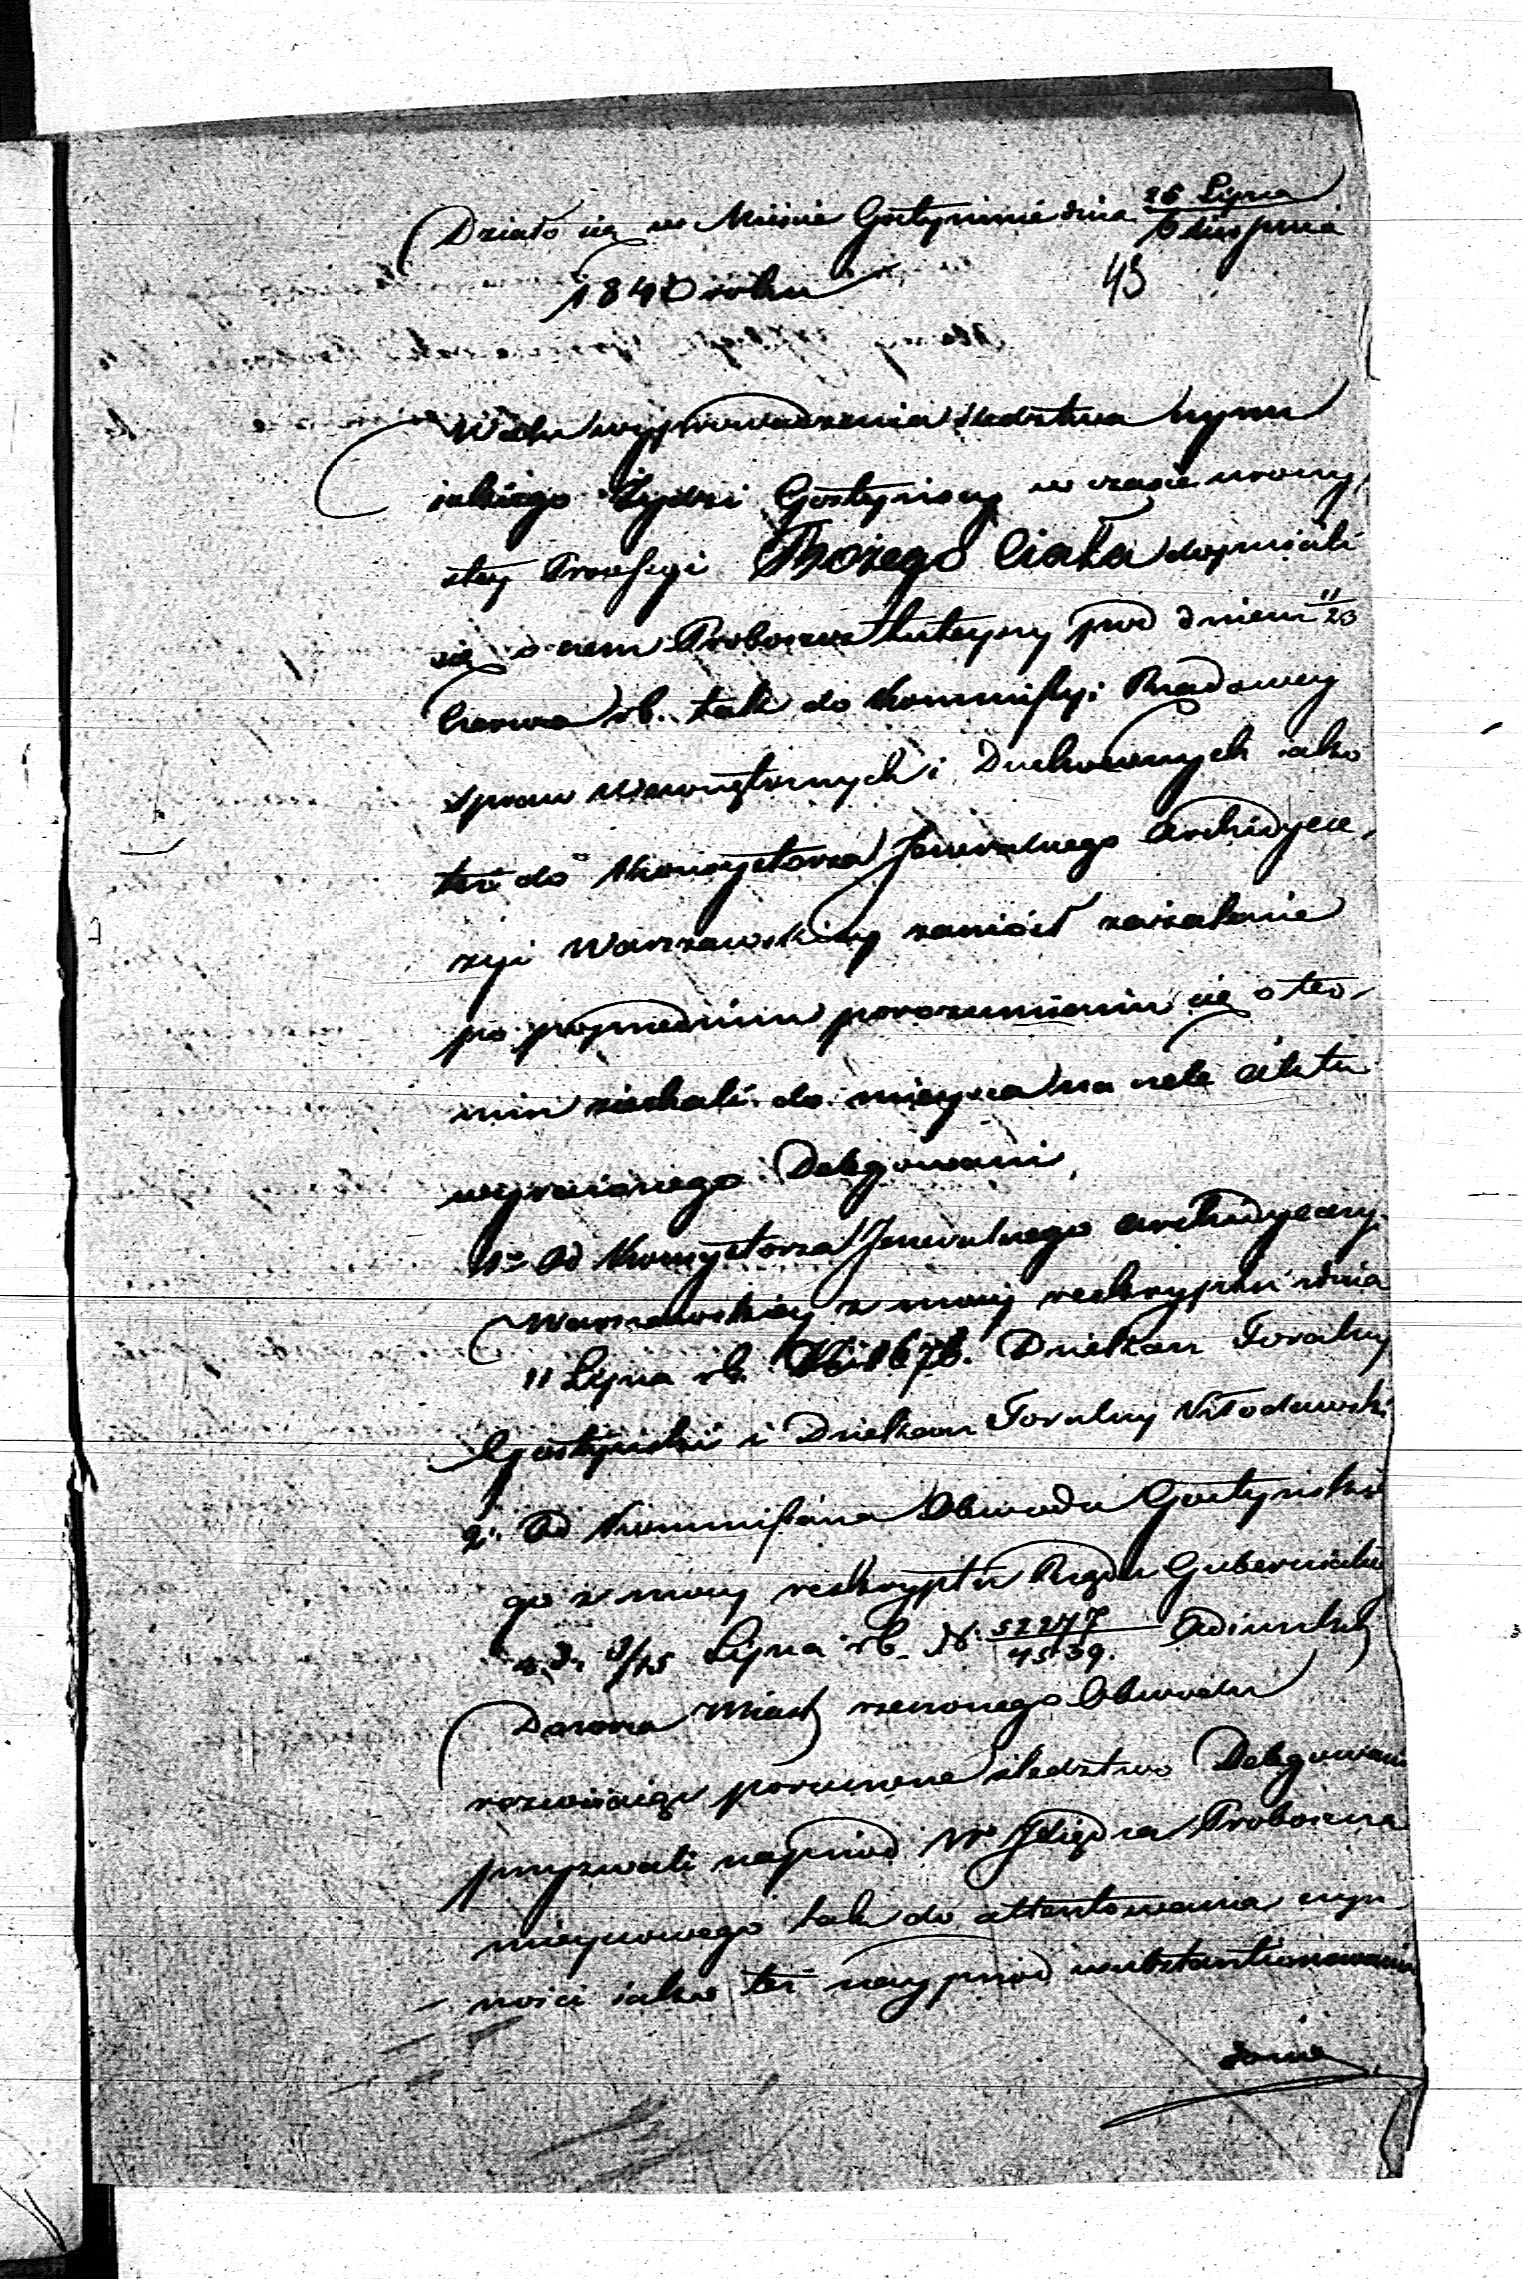 Działo się w Mieście Gostyninie dnia 26 Lipca
Sierpnia
1840 roku
43
W celu wyprowadzenia śledztwa czynu
jakiego Żydzi Gostynińscy w czasie uroczy,
stey Processyi Bożego Ciała dopuścili
się o czem Proboszcz tuteyszy pod dniem 11/23
Czerwca rb. tak do Kommissyi Rządowey
Spraw Wewnętrznych i Duchownych jako
też do Konsystorza Jeneralnego Archidyece,
zyi Warszawskiey zaniósł zażalenie
po poprzednim porozumieniu się o ter,
min ziechali do mieysca na czele Aktu
wyrażonego Delegowani,
1o Od Konsystorza Jeneralnego Archidyecezyi
Warszawskiey z mocy reskryptu z dnia
11 Lipca rb. Dziekan Foralny
Gostyński i Dziekan Foralny Kłodawski
2. Od Kommissarza Obwodu Gostyńskie
go z mocy reskryptu Rządu Gubernialne
z d. 3/15 Lipca rb. N. 52247/4539. Adiunkt
Dozorca Miast rzeczonego Obwodu
rozwiiaiąc poruczone śledztwo Delegowani
przyzwali nayprzod Wo Xiędza Proboszcza
mieyscowego tak do attentowania czyn
ności jako też nayprzod usubstantionowania